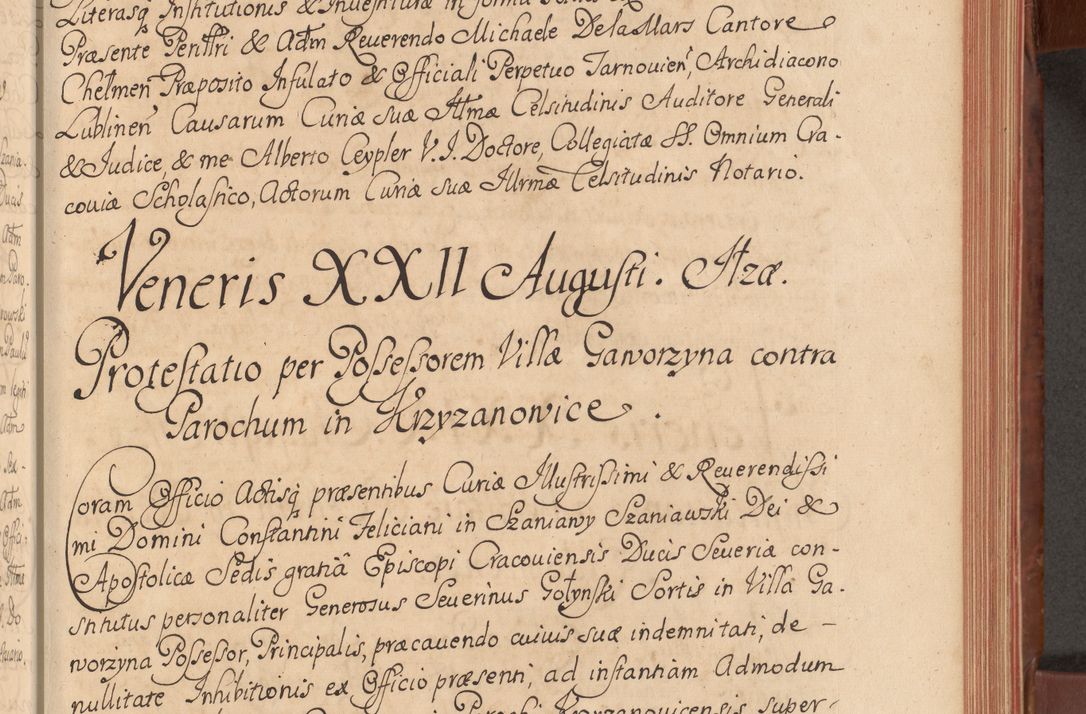 Literasq Institutionis & Inuestituræ in forma
Præsente Penltri & Adm Reuerendo Michaele DelaMars Cantore
Chelmen Præposito Infulato & Officiali Perpetuo Tarnouien, Archidiacono
Lublinen Causarum Curiæ suæ Illmæ Celsitudinis Auditore Generali
& Iudice, & me Alberto Ceypler V. I. Doctore, Collegiatæ SS. Omnium Cra-
couiæ Scholastico, Actorum Curiæ suæ Illrmæ Celsitudinis Notario.
Veneris XXII Augusti. Anæ.
Protestatio per Possessorem Villæ Gaworzyna contra
Parochum in Krzyzanowice.
Coram Officio Actisq præsentibus Curiæ Illustrissimi & Reuerendissi
mi Domini Constantini Feliciani in Szaniawy Szaniawski Dei &
Apostolicæ Sedis gratiâ Episcopi Cracouiensis Ducis Seueriæ con-
stitutus personaliter Generosus Seuerinus Gołynski Sortis in Villa Ga-
worzyna Possessor, Principalis, præcauendo cuiuis suæ indemnitati, de -
nullitate Inhibitionis ex Officio præsenti, ad instantiam Admodum
Parochi Krzyzanouicensis super-